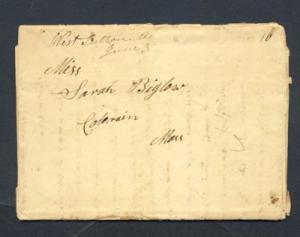 West
June 3
Miss
Sarah Biglow
Colerain
Mass